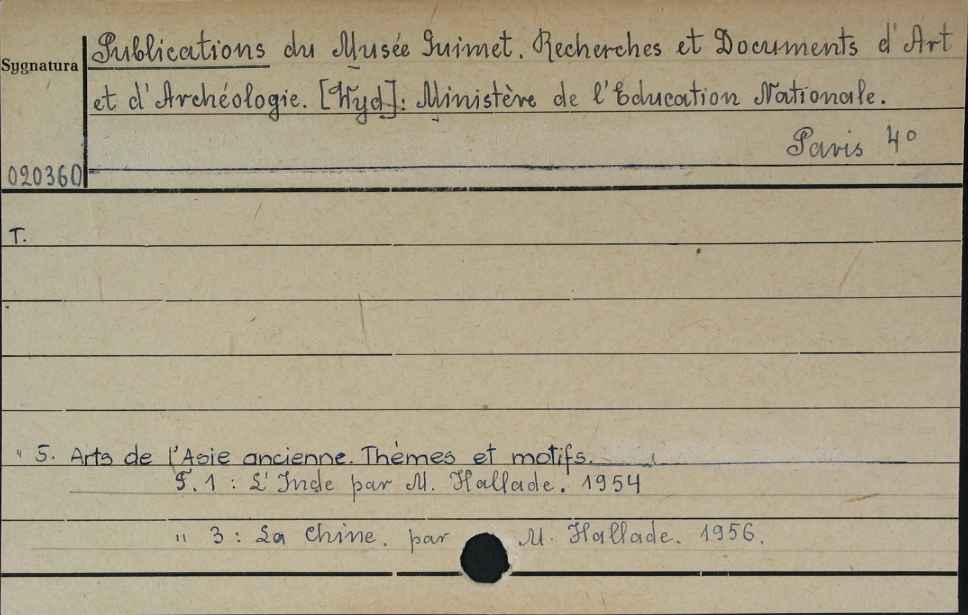 Publications du Musée Guimet. Recherches et Documents d'Art
Sygnatura
et d'Archéologie. [Wyd]: Ministère de l'Education Nationale.
Paris 4°
020360
T.
" 5. Arts de l'Asie ancienne. Thèmes et motifs.
T. 1 : L'Inde par M. Hallade. 1954
" 3 : La Chine. par M. Hallade. 1956.